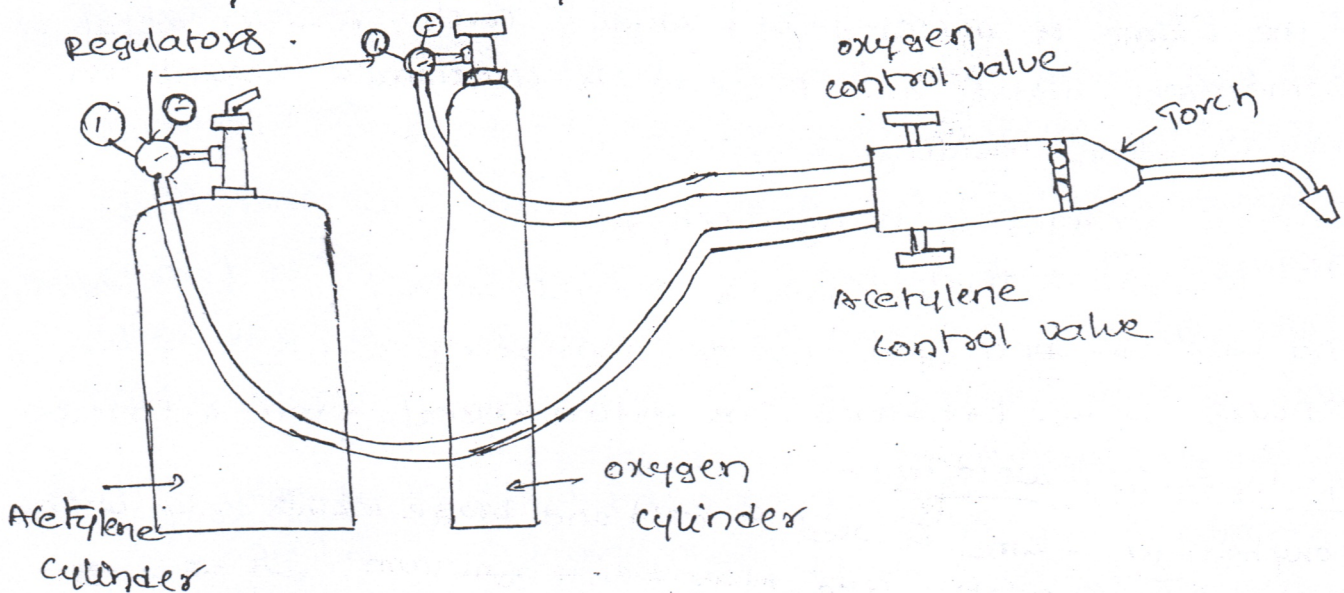 Regulators.
oxygen
control valve
Torch
Acetylene
control valve
oxygen
cylinder
Acetylene
cylinder